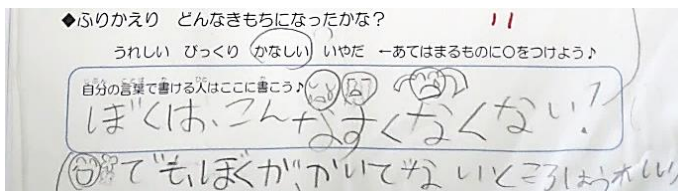 ◆ふりかえり どんなきもちになったかな？
うれしい びっくり かなしい いやだ ←あてはまるものに○をつけよう♪
自分の言葉で書ける人はここに書こう♪
ぼくは、こんなすくなくない！
でも、ぼくが、かいてないところはうれしい